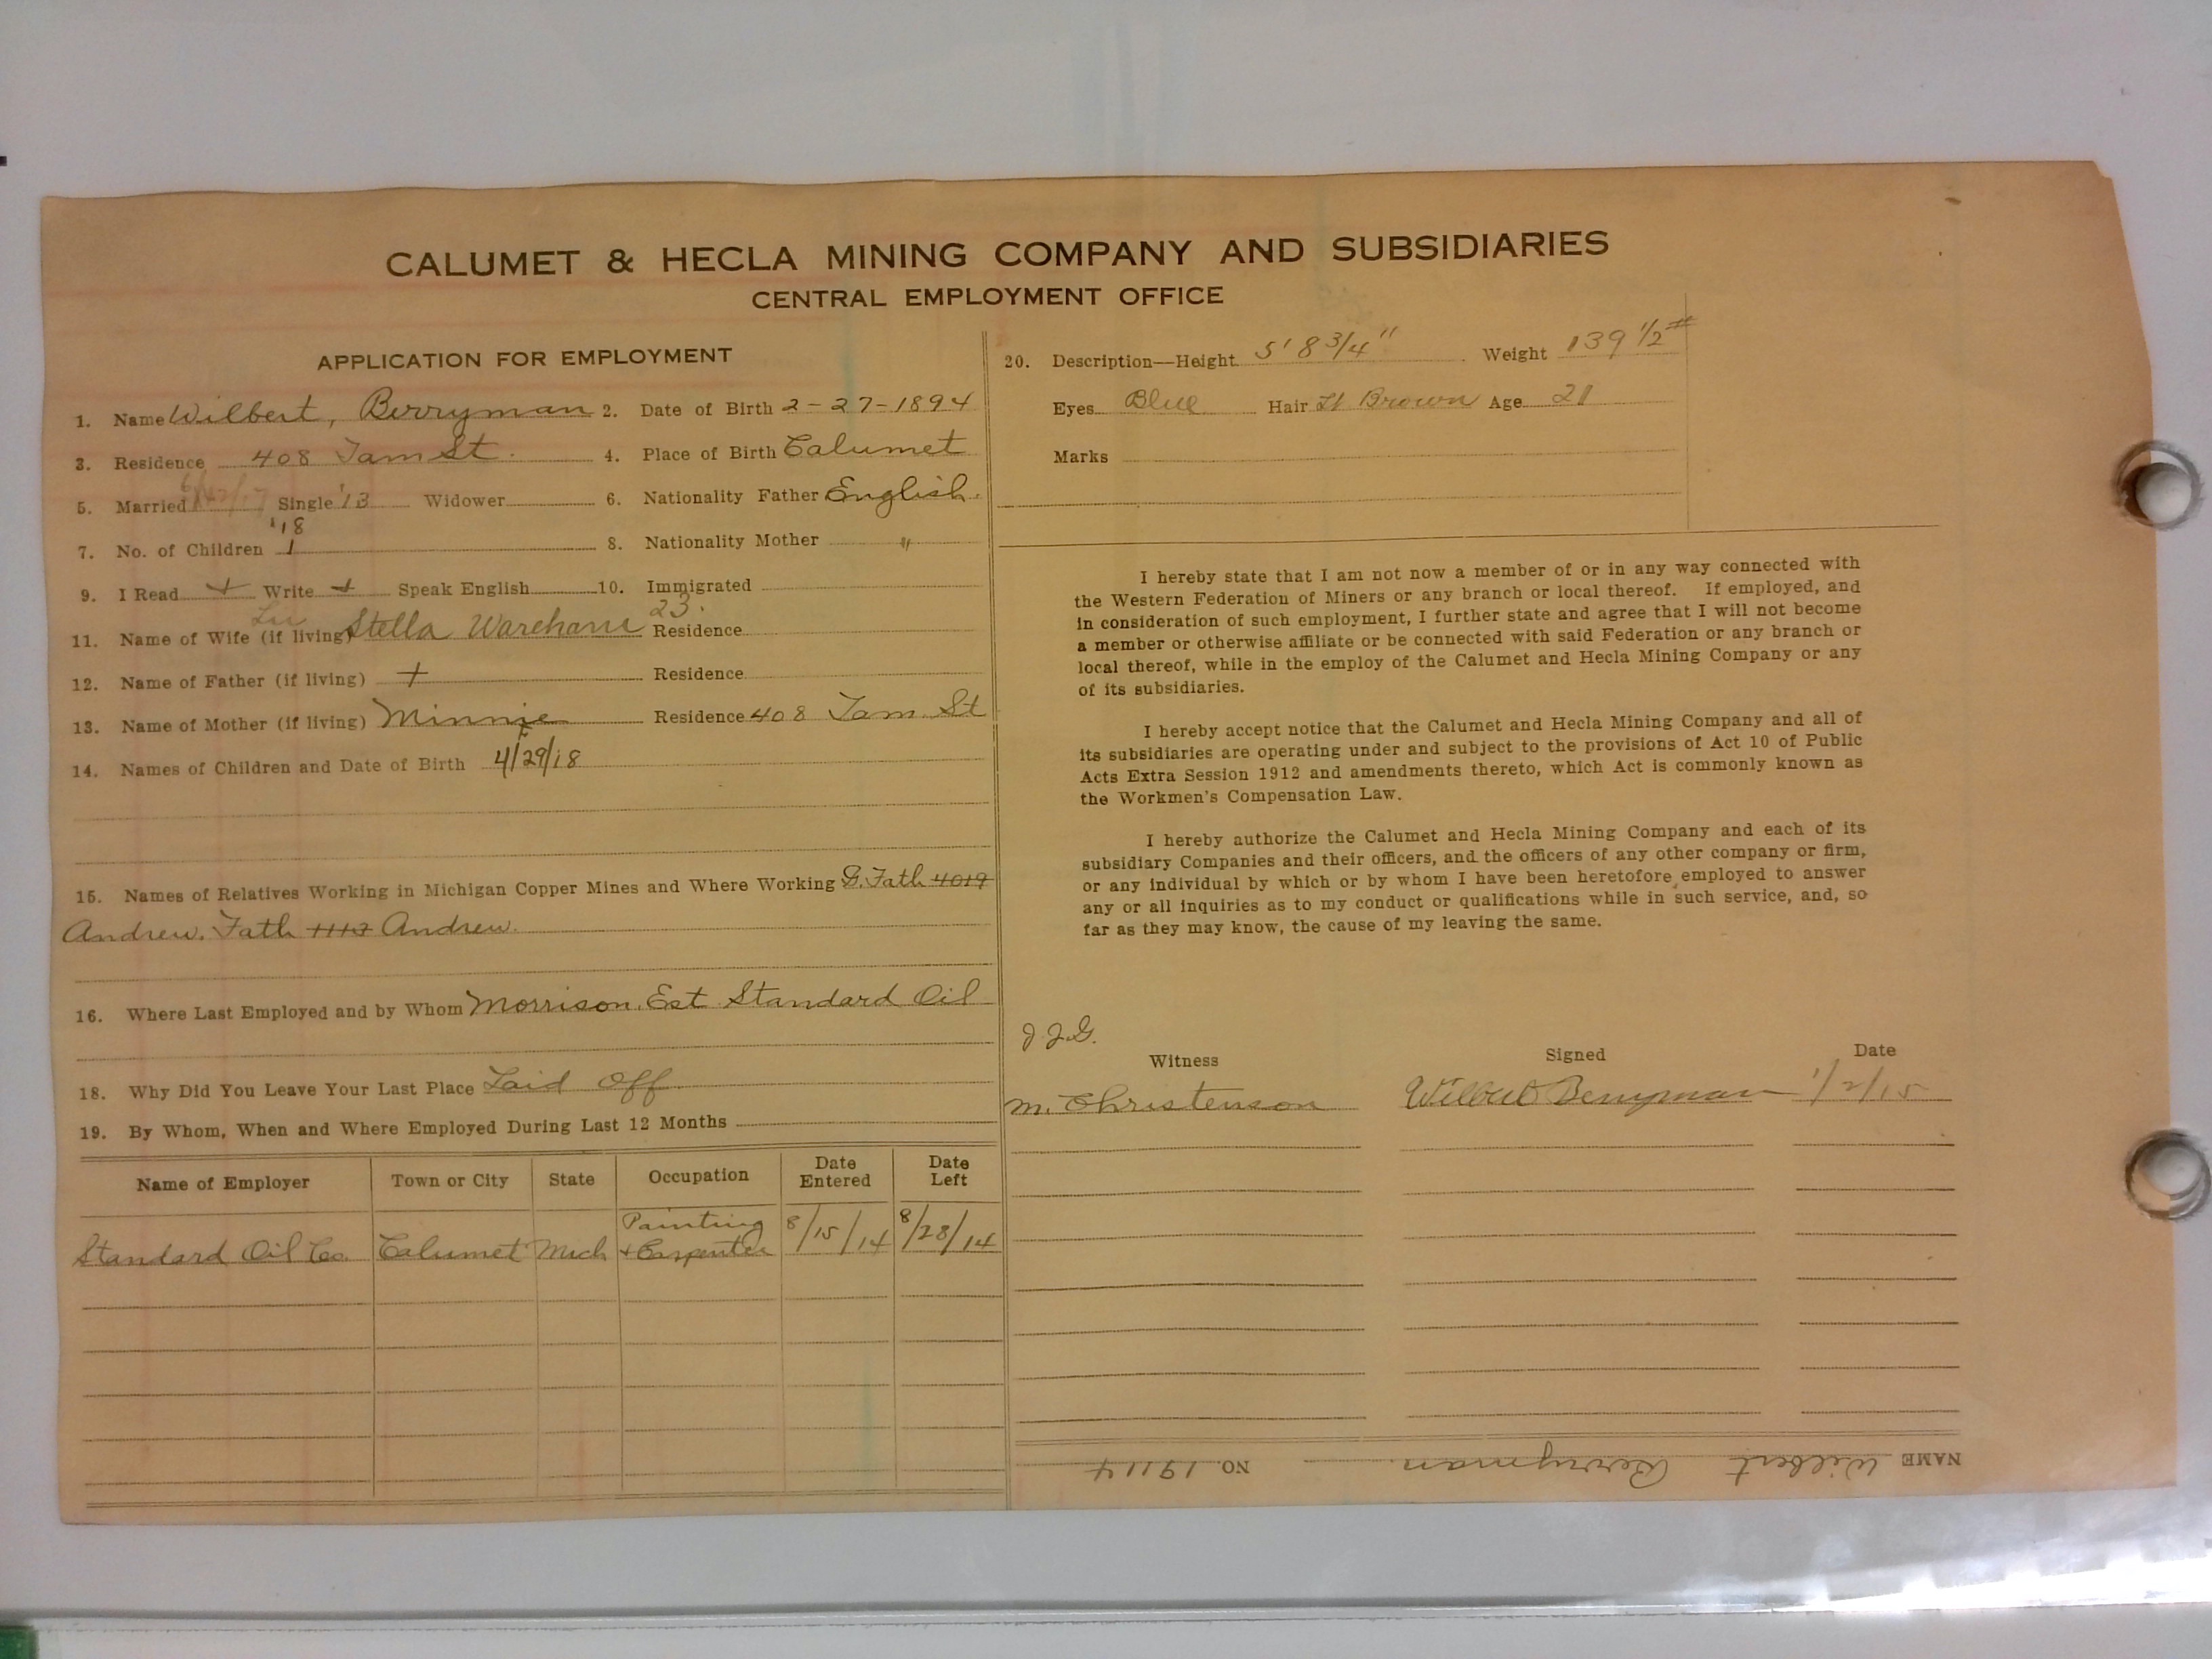 CALUMET & HECLA MINING COMPANY AND SUBSIDIARIES
CENTRAL EMPLOYMENT OFFICE
APPLICATION FOR EMPLOYMENT
1. Name Wilbert, Berryman 2. Date of Birth 2-27-1894
3. Residence 408 Tam St. 4. Place of Birth Calumet
5. Married Single '13 Widower 6. Nationality Father English.
'18
7. No. of Children 1 8. Nationality Mother "
9. I Read + Write + Speak English 10. Immigrated
23.
11. Name of Wife (if living) Stella Wareham Residence
12. Name of Father (if living) + Residence
13. Name of Mother (if living) Minnie Residence 408 Tam. St
14. Names of Children and Date of Birth 4/29/18
15. Names of Relatives Working in Michigan Copper Mines and Where Working G. Fath 4019
Andrew. Fath 1113 Andrew.
16. Where Last Employed and by Whom Morrison. Est. Standard Oil
18. Why Did You Leave Your Last Place Laid Off
19. By Whom, When and Where Employed During Last 12 Months
Name of Employer Town or City State Occupation Date Entered Date Left
Standard Oil Co. Calumet Mich Painting + Carpenter 8/15/14 8/28/14
20. Description—Height 5' 8 3/4" Weight 139 1/2 #
Eyes Blue Hair Lt Brown Age 21
Marks
I hereby state that I am not now a member of or in any way connected with
the Western Federation of Miners or any branch or local thereof. If employed, and
in consideration of such employment, I further state and agree that I will not become
a member or otherwise affiliate or be connected with said Federation or any branch or
local thereof, while in the employ of the Calumet and Hecla Mining Company or any
of its subsidiaries.
I hereby accept notice that the Calumet and Hecla Mining Company and all of
its subsidiaries are operating under and subject to the provisions of Act 10 of Public
Acts Extra Session 1912 and amendments thereto, which Act is commonly known as
the Workmen's Compensation Law.
I hereby authorize the Calumet and Hecla Mining Company and each of its
subsidiary Companies and their officers, and the officers of any other company or firm,
or any individual by which or by whom I have been heretofore employed to answer
any or all inquiries as to my conduct or qualifications while in such service, and, so
far as they may know, the cause of my leaving the same.
J.J.G.
Witness Signed Date
M. Christenson Wilbert Berryman 1/2/15
NAME Wilbert Berryman. NO. 19114